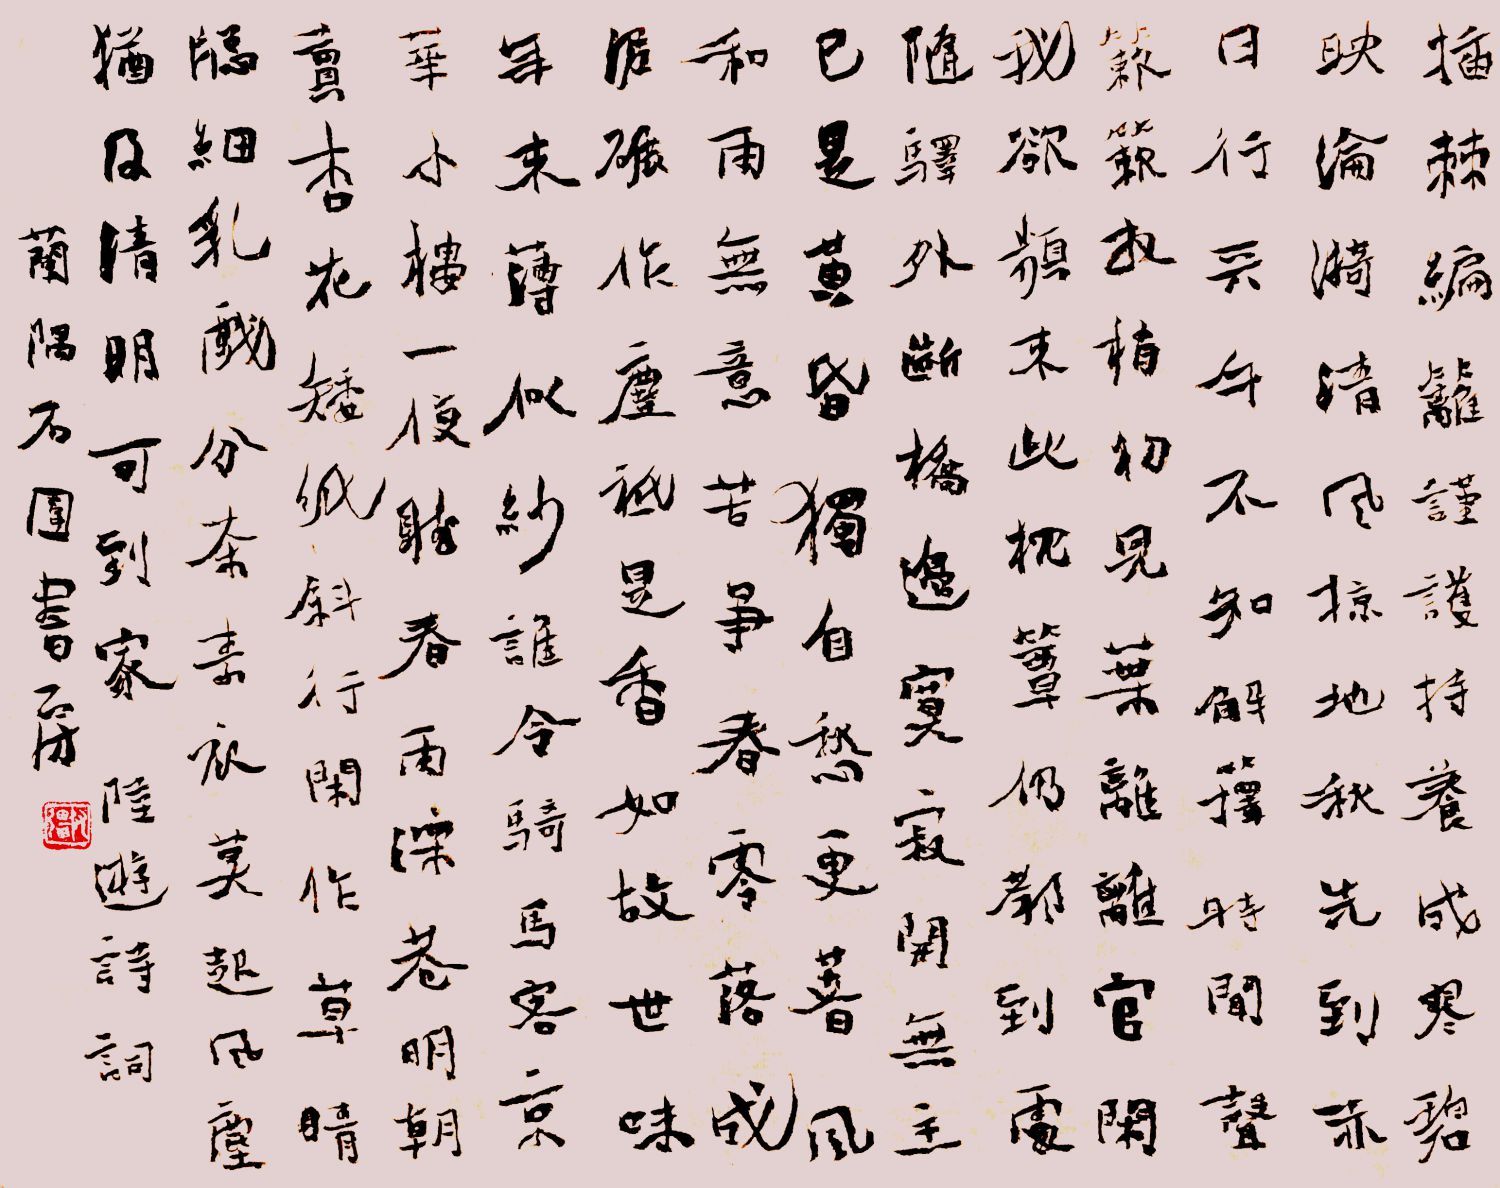 插棘編籬謹護持養成寒碧
映淪漪清風掠地秋先到赤
日行天午不知解籜時聞聲
簌簌放梢初見葉離離官閑
我欲頻來此枕簟仍教到處
隨驛外斷橋邊寞寂開無主
已是黃昏獨自愁更著風
和雨無意苦爭春零落成
泥碾作塵祗是香如故世味
年來薄似紗誰令騎馬客京
華小樓一夜聽春雨深巷明朝
賣杏花矮紙斜行閑作草晴
牕細乳戲分茶素衣莫起風塵
猶及清明可到家 陸遊詩詞
蘭隅石園書石房